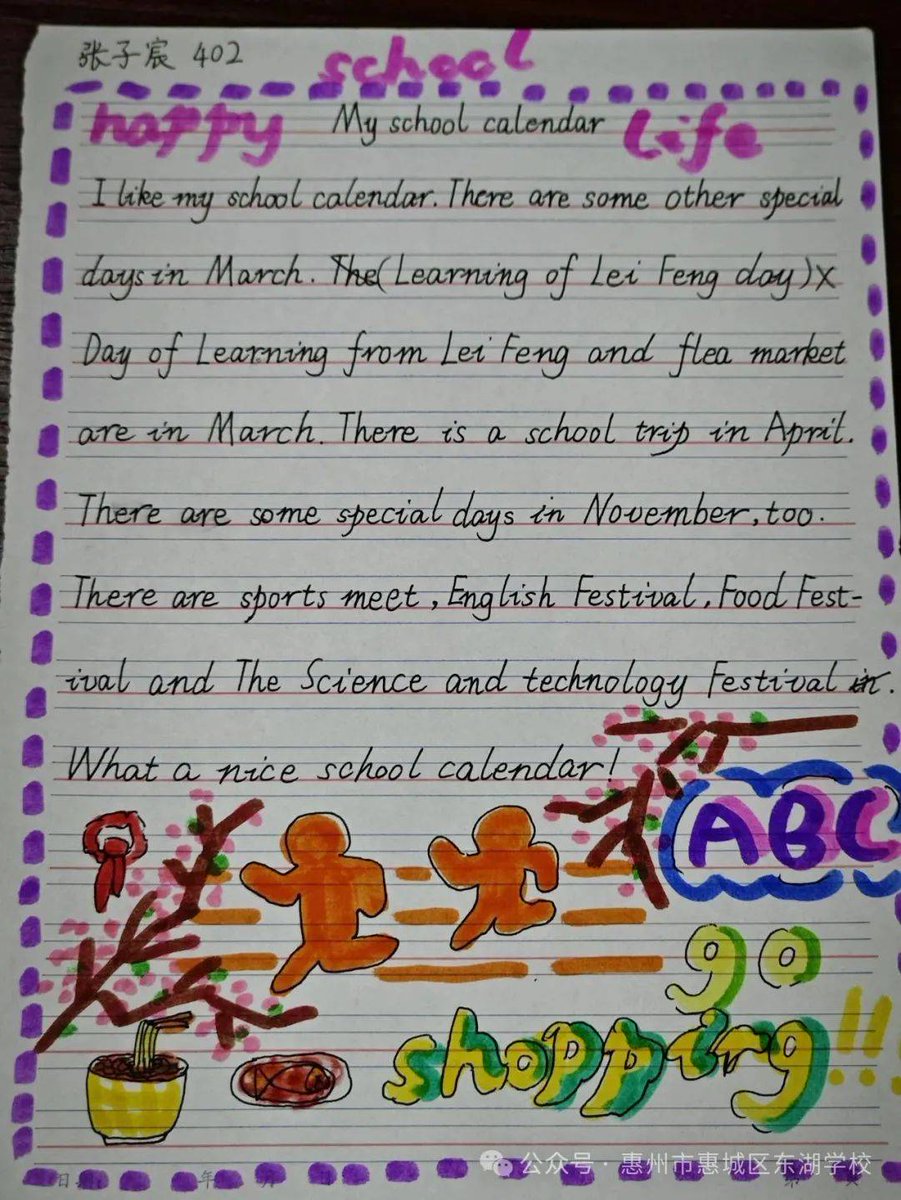 张子宸 402
school
happy My school calendar life
I like my school calendar. There are some other special
days in March. The (Learning of Lei Feng day)X
Day of Learning from Lei Feng and flea market
are in March. There is a school trip in April.
There are some special days in November, too.
There are sports meet, English Festival, Food Fest-
ival and The Science and technology Festival in.
What a nice school calendar!
ABC
go
shopping!!
公众号·惠州市惠城区东湖学校